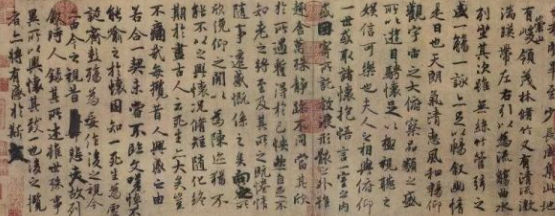 至少長咸集此地
有崇山峻領茂林脩竹又有清流激
湍暎帶左右引以為流觴曲水
列坐其次雖無絲竹管弦之
盛一觴一詠亦足以暢叙幽情
是日也天朗氣清惠風和暢仰
觀宇宙之大俯察品類之盛
所以遊目騁懷足以極視聽之
娛信可樂也夫人之相與俯仰
一世或取諸懷抱悟言一室之內
或因寄所託放浪形骸之外雖
趣舍萬殊靜躁不同當其欣
於所遇蹔得於己怏然自足不
知老之將至及其所之既惓情
隨事遷感慨係之矣向之所
欣俛仰之間以為陳迹猶不
能不以之興懷況脩短隨化終
期於盡古人云死生亦大矣豈
不痛哉每攬昔人興感之由
若合一契未嘗不臨文嗟悼不
能喻之於懷固知一死生為虛
誕齊彭殤為妄作後之視今
亦由今之視昔悲夫故列
敘時人錄其所述雖世殊事
異所以興懷其致一也後之攬
者亦將有感於斯文